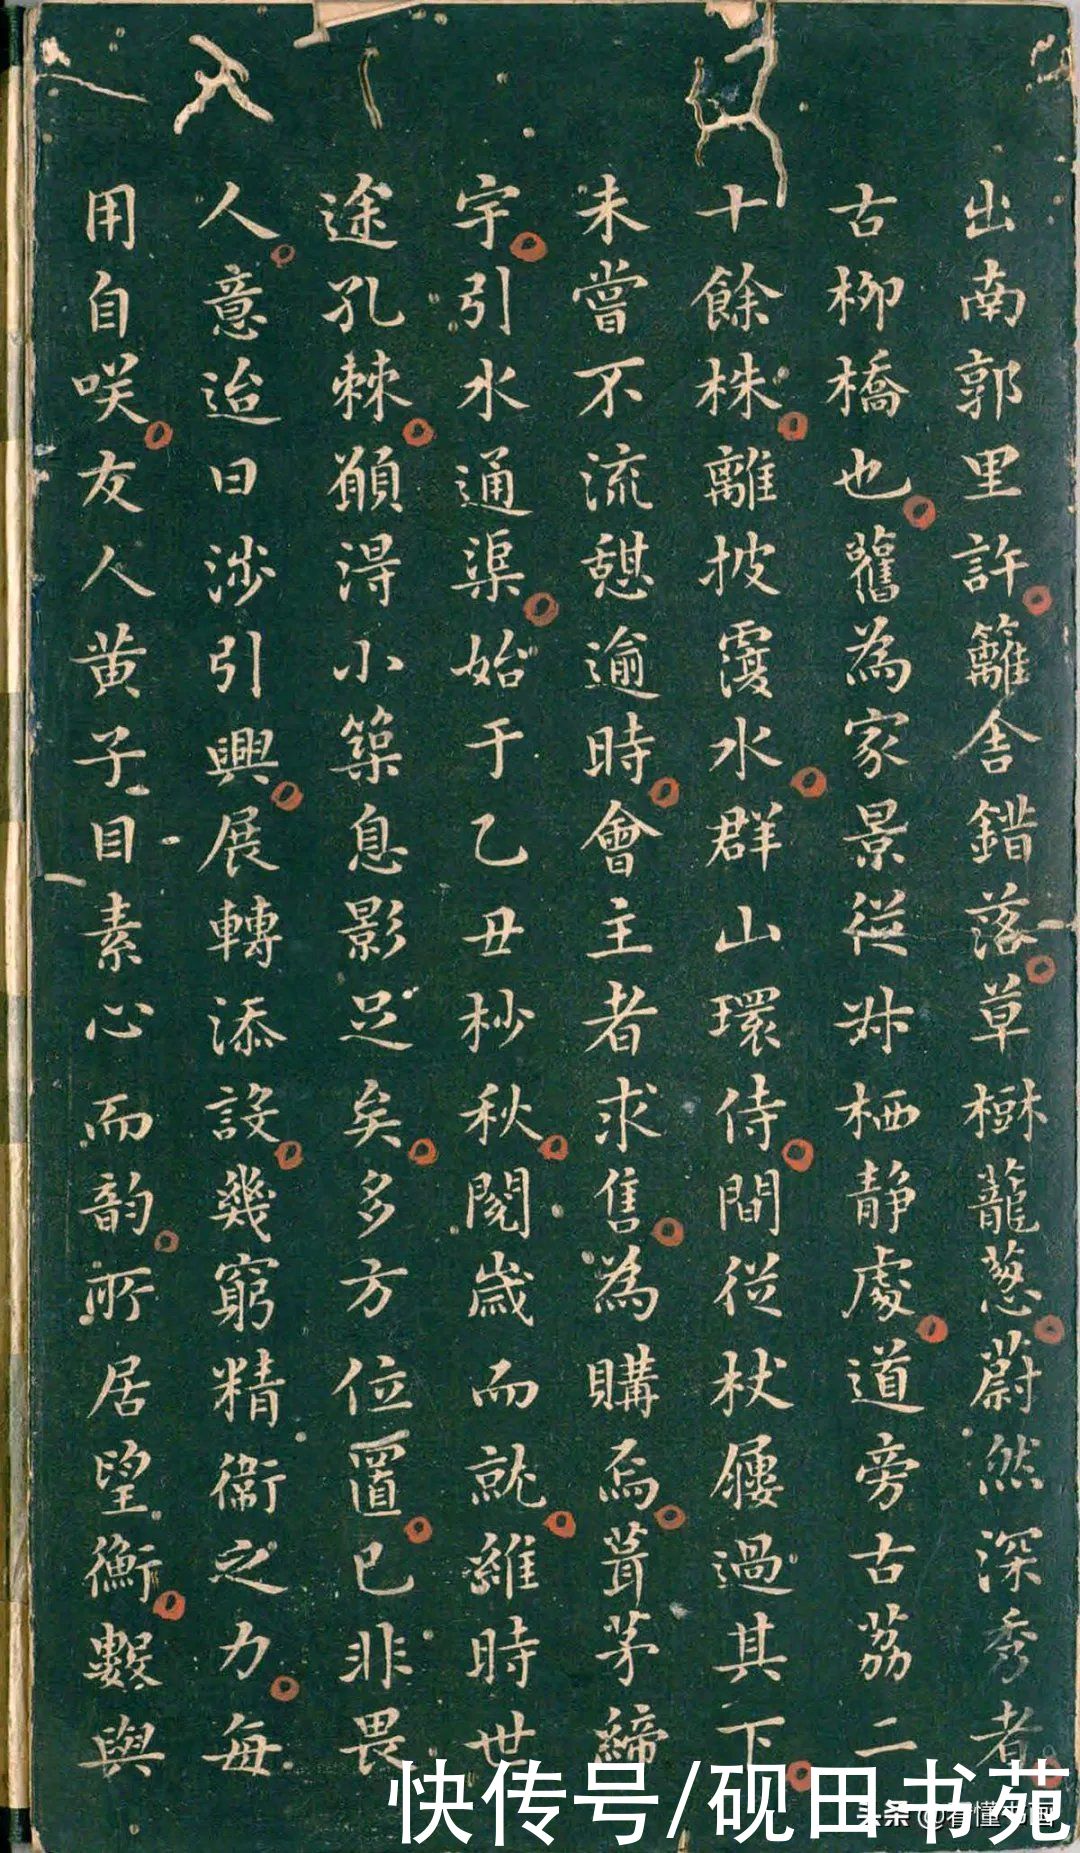 出南郭里許籬舍錯落草樹蘢蔥蔚然深秀者
古柳橋也舊為家景從叔栖靜處道旁古荔二
十餘株離披覆水群山環侍間從杖屨過其下
未嘗不流憩逾時會主者求售為購焉葺茅締
宇引水通渠始于乙丑杪秋閱歲而就維時世
途孔棘願得小築息影足矣多方位置已非畏
人意迨日涉引興展轉添設幾窮精衞之力每
用自咲友人黃子目素心而韵所居望衡數與
快传号/砚田书苑
头条 @看懂书画